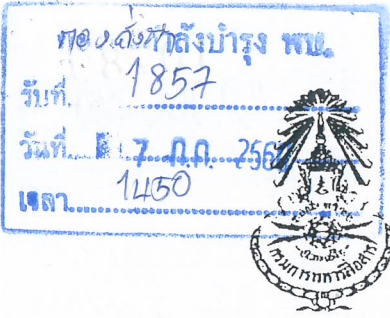 กองส่งกำลังบำรุง พบ.
รับที่ 1857
วันที่ 7 ก.ค. 256
เวลา 1450
กรมการทหารสื่อสาร